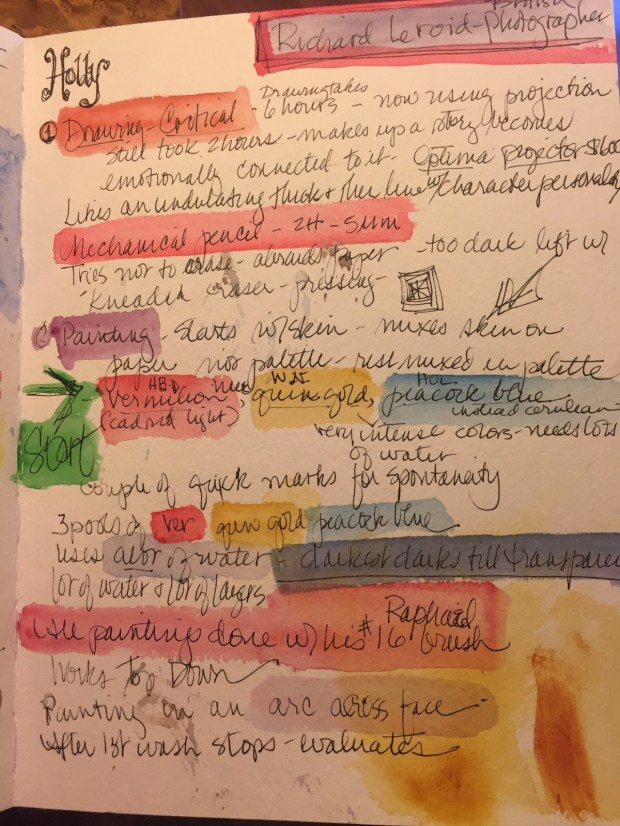 Holly
British
Richard Leroid - photographer
① Drawing - Critical - Drawing takes 6 hours - now using projection
Still took 2 hours - makes up a story becomes
emotionally connected to it - Optima projector $600
Likes an undulating thick & thin line w/ character personality
Mechanical pencil - 2H - 5mm
Tries not to erase - abraids paper - too dark lift w/
Kneaded eraser - pressing -
② Painting - Starts w/ skin - mixes skin on
paper not palette - rest mixed in palette
HBD W&N HOL
Vermilion, quin gold, peacock blue
(cad red light) indead cerulean
Start very intense colors - needs lots
of water
Couple of quick marks for spontaneity
3 pools of ver quin gold peacock blue
uses a lot of water - darkest darks still transparen
lot of water & lot of layers
All paintings done w/ his #16 Raphael brush
Works Top Down
Painting in an arc across face -
After 1st wash stops - evaluates